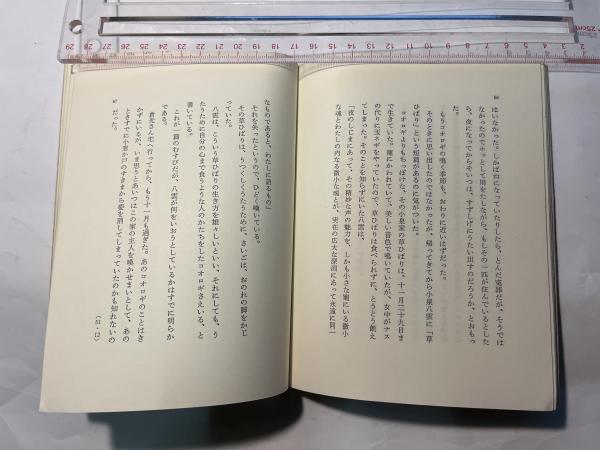 86
はいなかった。しかばねになっていたりしたら、とんだ冤罪だが、そうでは
なかったのでホッとして雨をたしながら、もしその一匹が住んでいるとした
ら、夜になってからそいつは、すずしげにうたい出すのだろうか、とおもっ
た。
もうコオロギの鳴く季節も、おわりに近いはずだった。
そのときに思い出したのではなかったが、帰ってきてから小泉八雲に「草
ひばり」という短篇があるのに気がついた。
コオロギよりももっぽけな、その小泉家の草ひばりは、十一月二十九日ま
で生きていた。籠にかわれていて、美しい音色で鳴いていたが、女中がナス
の代りに玉ネギをやっていたので、草ひばりは食べられずに、とうとう餓え
てしまった。そのことを知らずにいた八雲は、
「夜のしじまにあって、その精妙な声の魅力を、しかも小さな籠にいる微小
な魂とわたしの内なる微小な魂とが、実在の広大な深淵にあって永遠に同一
87
なものであると、わたしに語るもの」
それを失ったというので、ひどく嘆いている。
その草ひばりは、うつくしくうたうために、さいごは、おのれの脚をかじ
っていた。
八雲は、こういう草ひばりの生き方を雄々しいといい、それにしても、う
たうために自分の心まで食うような人のかたちをしたコオロギさえいる、と
書いている。
これが一篇のむすびだが、八雲が何をいおうとしているかはすでに明らか
である。
蒼光さん宅へ行ってから、もう十一月も過ぎた。あのコオロギのことはき
かずにいるが、いま思うとあいつはこの家の主人を嘆かせまいとして、あの
ときすでに小窓か戸のすきまから姿を消してしまっていたのかも知れないの
だった。
(51・12)
29 28 27 26 25 24 23 22 21 20 19 18 17 16 15 14 13 12 11 10 9 8 7 6 5 4 3
25cm